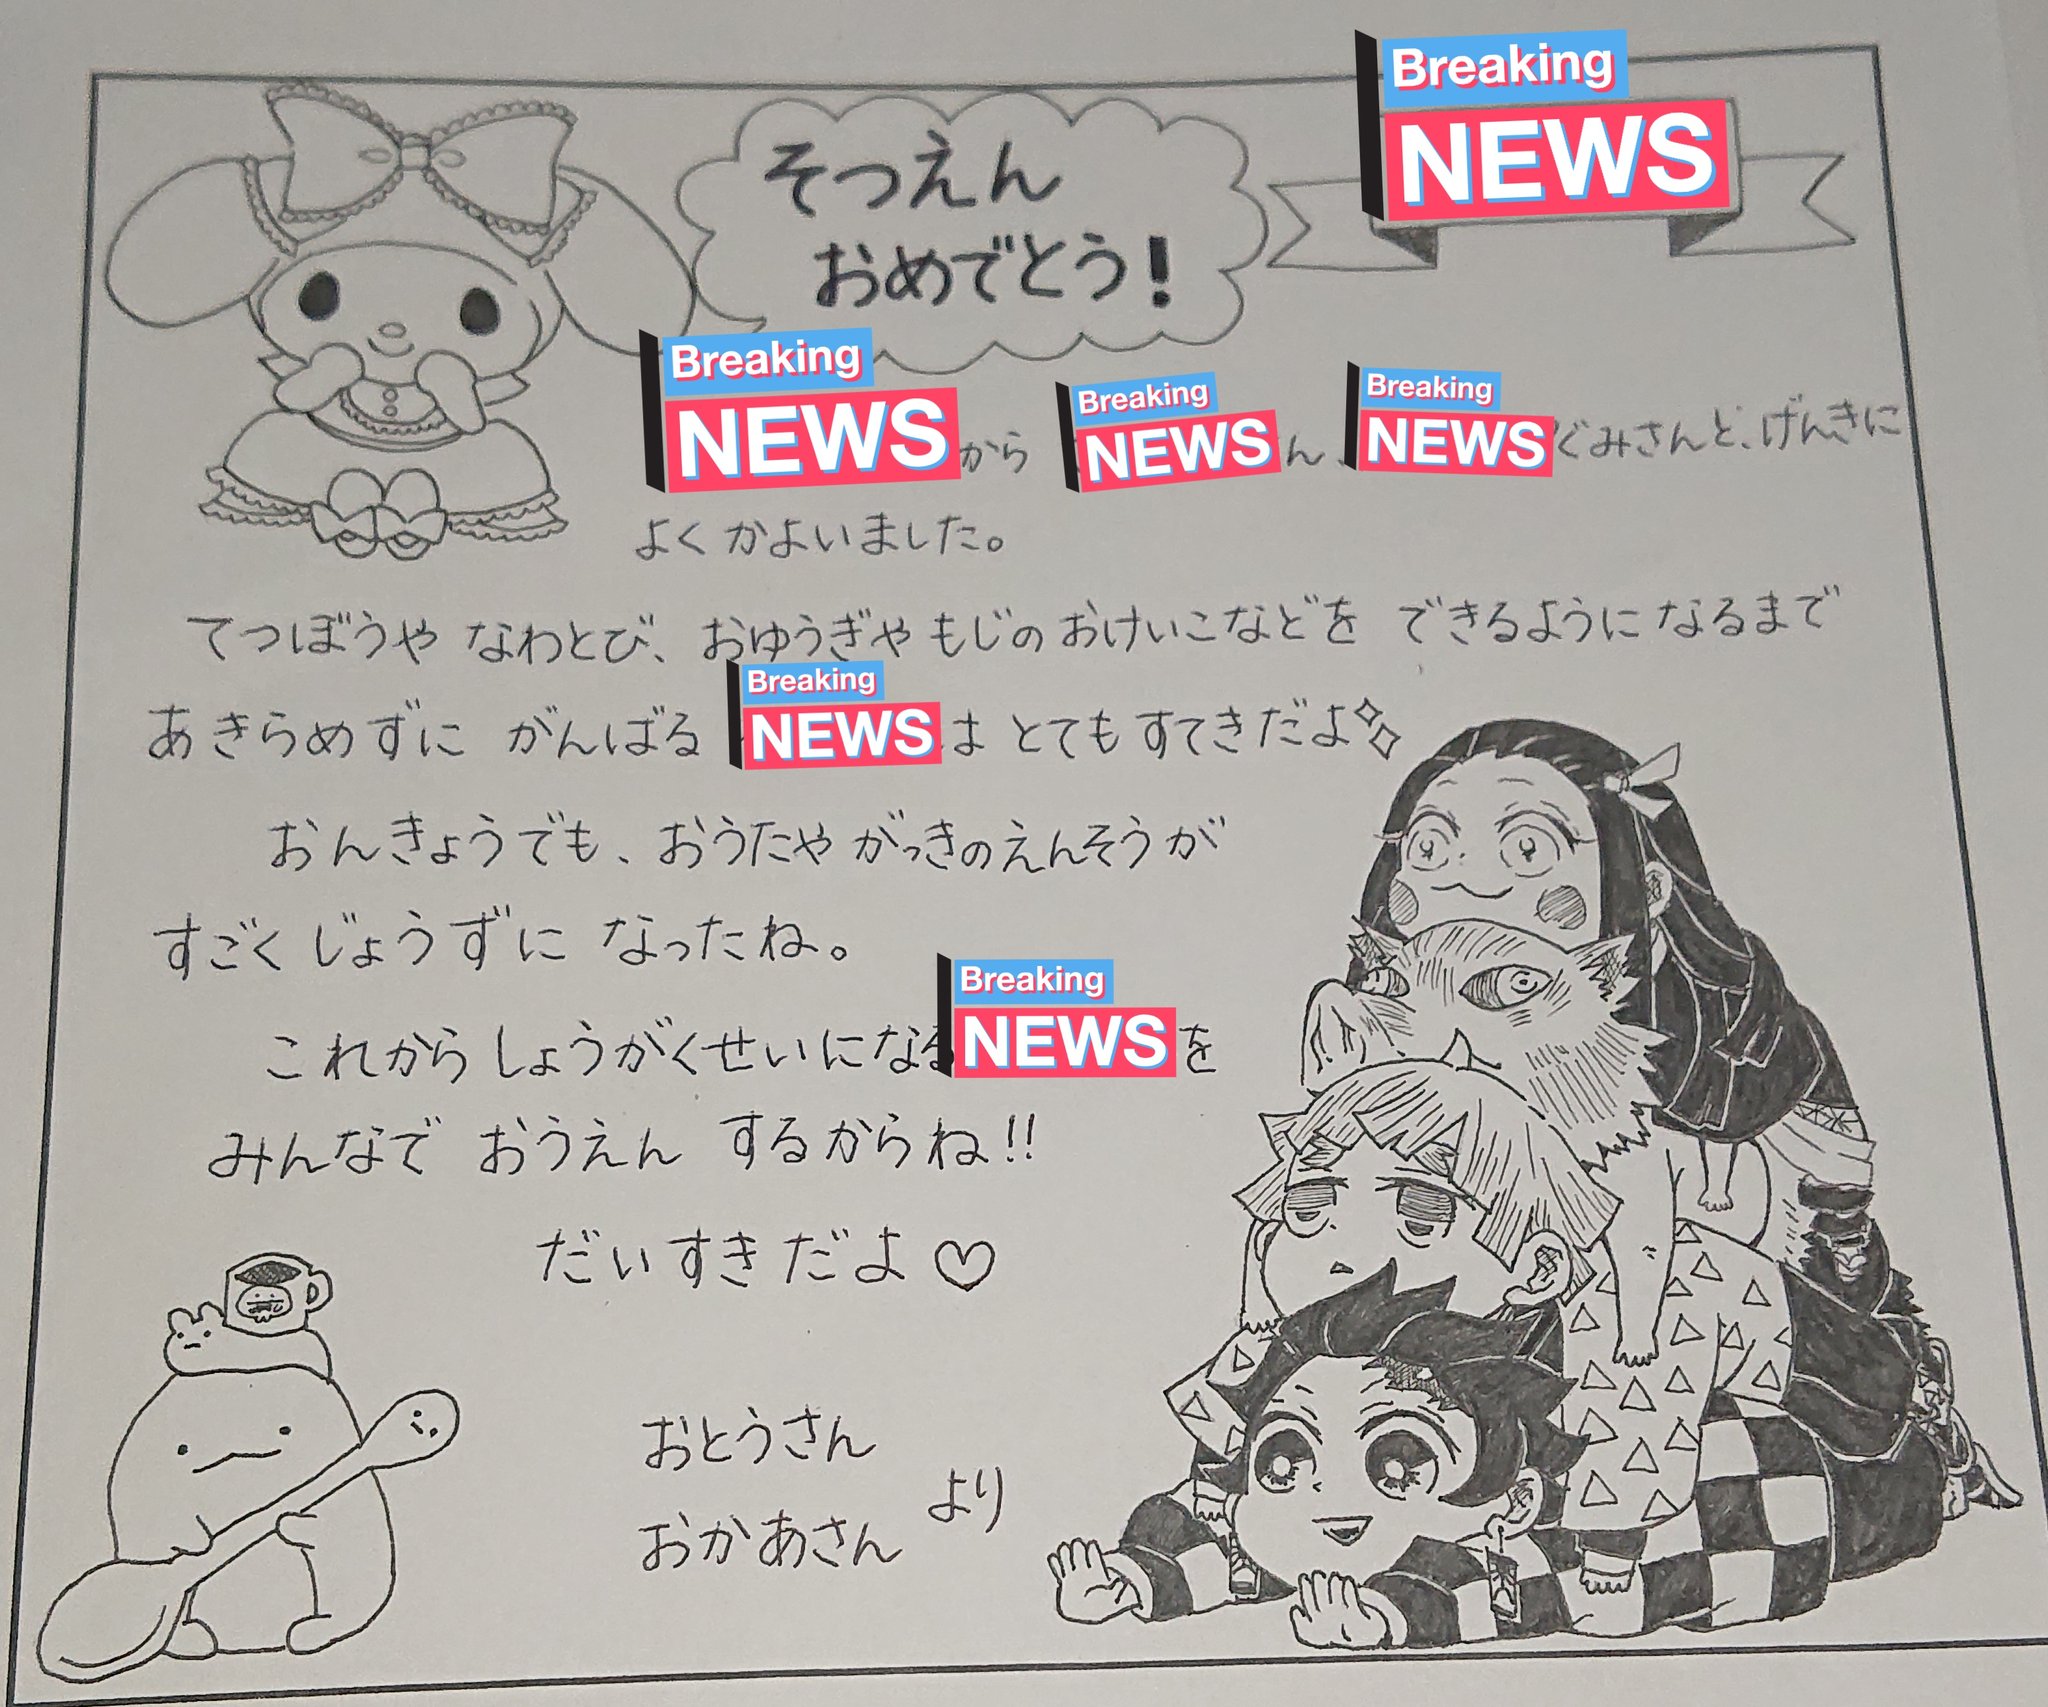 Breaking
NEWS
そつえん
おめでとう!
Breaking
NEWS
から
Breaking
NEWS
ん、
Breaking
NEWS
ぐみさんと、げんきに
よく かよいました。
てつぼうや なわとび、おゆうぎや もじの おけいこなどを できるように なるまで
あきらめずに がんばる
Breaking
NEWS
は とても すてきだよ
おんきょうでも、おうたや がっきの えんそうが
すごく じょうずに なったね。
これから しょうがくせいになる
Breaking
NEWS
を
みんなで おうえん するからね!!
だいすきだよ♡
おとうさん
おかあさん
より